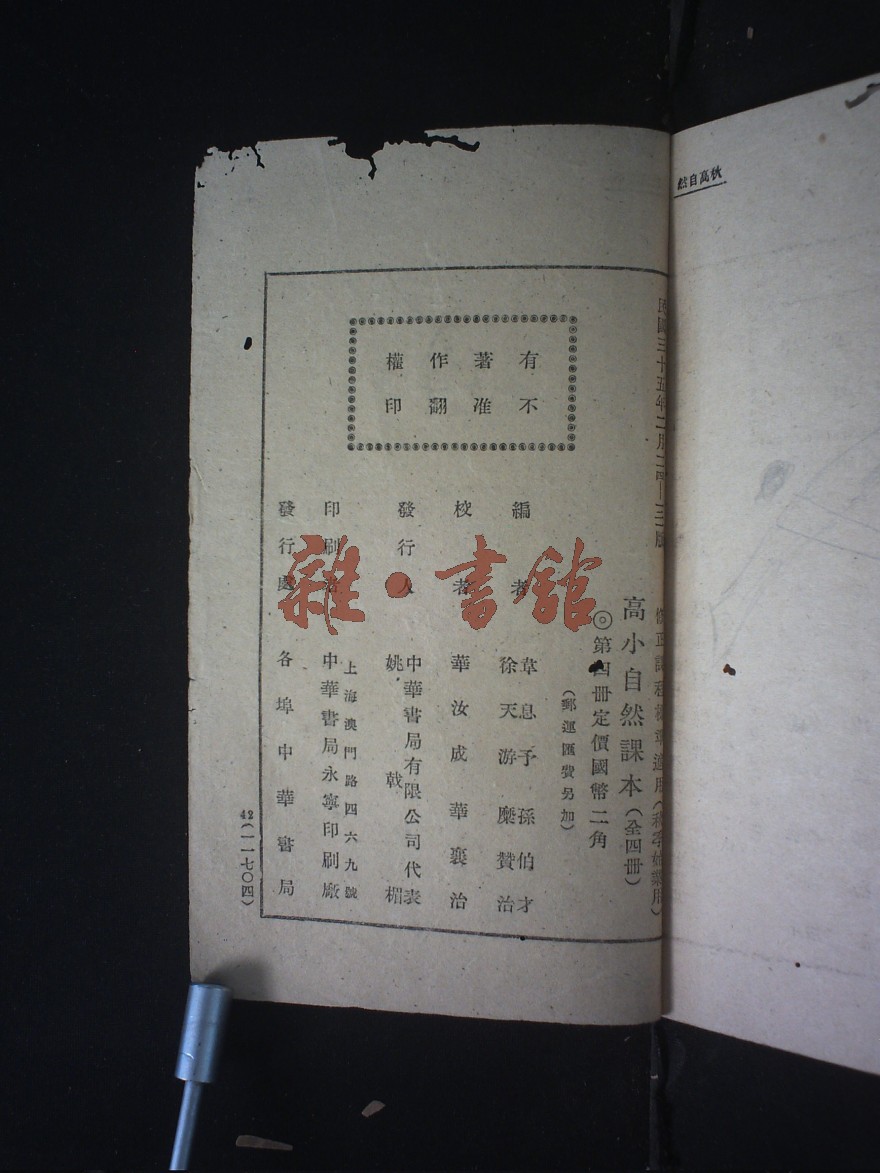 秋高自然
民國三十五年二月二四一三版
修正課程標準適用(秋季始業用)
高小自然課本(全四冊)
◎第四冊定價國幣二角
(郵運匯費另加)
編者
韋息予 孫伯才
徐天游 糜贊治
校者 華汝成 華襄治
發行人 中華書局有限公司代表
姚戟楣
印刷者 上海澳門路四六九號
中華書局永寧印刷廠
發行處 各埠中華書局
有著作權
不准翻印
42(一一七〇四)
雜·書館